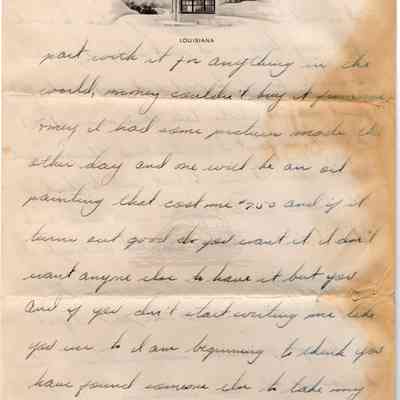 LOUISIANA
part with it for anything in the
world, money couldn't buy it from me
I had some pictures made the
other day and one will be an oil
painting that cost me $7.50 and if it
turns out good do you want it. I don't
want anyone else to have it but you
and if you don't start writing me like
you use to I am beginning to think you
have found someone else to take my